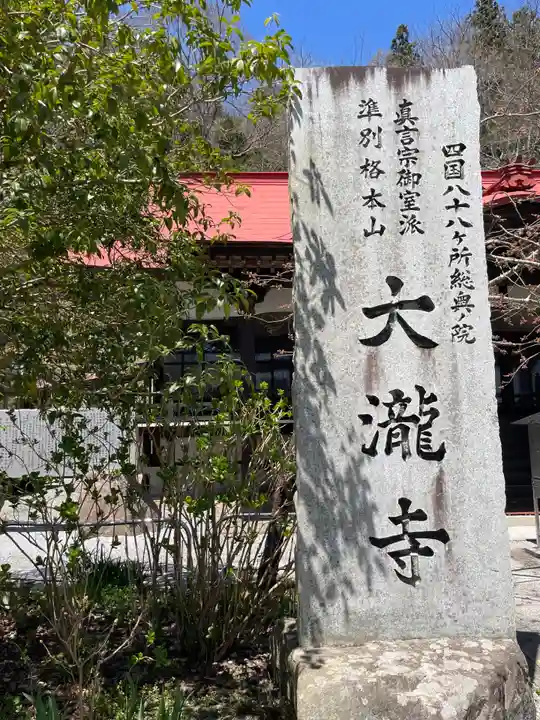 四国八十八ヶ所総奥ノ院
真言宗御室派
準別格本山
大瀧寺